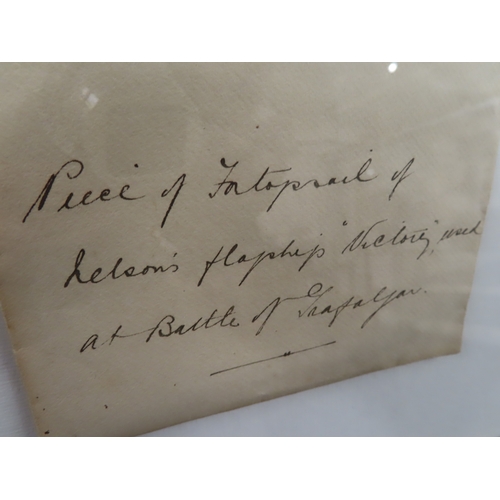 Piece of Fortopsail of
Nelson's flagship "Victory", used
at Battle of Trafalgar.